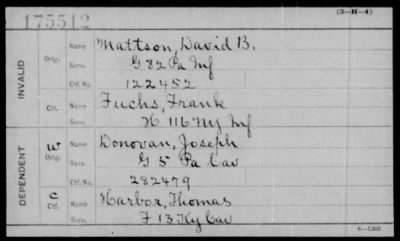 175512
(3—H—4)
INVALID
Orig.
Name Mattson, David B.
Serv. G 82 Pa Inf
Ctf. No. 122452
Ctf.
Name Fuchs, Frank
Serv. K 116 Ny Inf
DEPENDENT
W
Orig.
Name Donovan, Joseph
Serv. G 5 Pa Cav
Ctf. No. 282479
C
Ctf.
Name Harbor, Thomas
Serv. F 13 Ky Cav